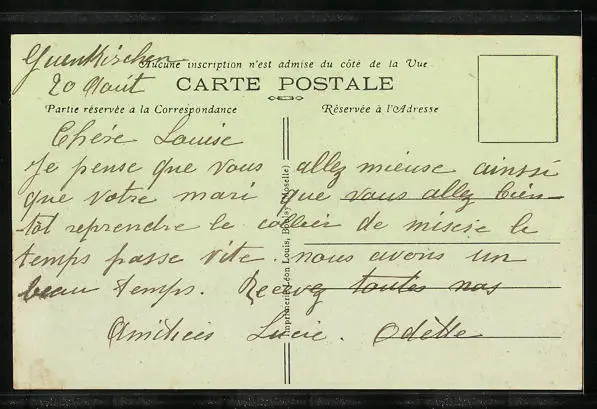 Guenkirchen
Aucune inscription n'est admise du côté de la Vue
20 Août
CARTE POSTALE
Partie réservée a la Correspondance
Réservée à l'Adresse
Chére Louise
Je pense que vous allez mieuse ainssi
que votre mari que vous allez bien-
tot reprendre le collier de misere le
temps passe vite. nous avons un
beau temps. Recevez toutes nos
Amitiees Lucie. Odette
Imprimerie Léon Louis, Boulay (Moselle)